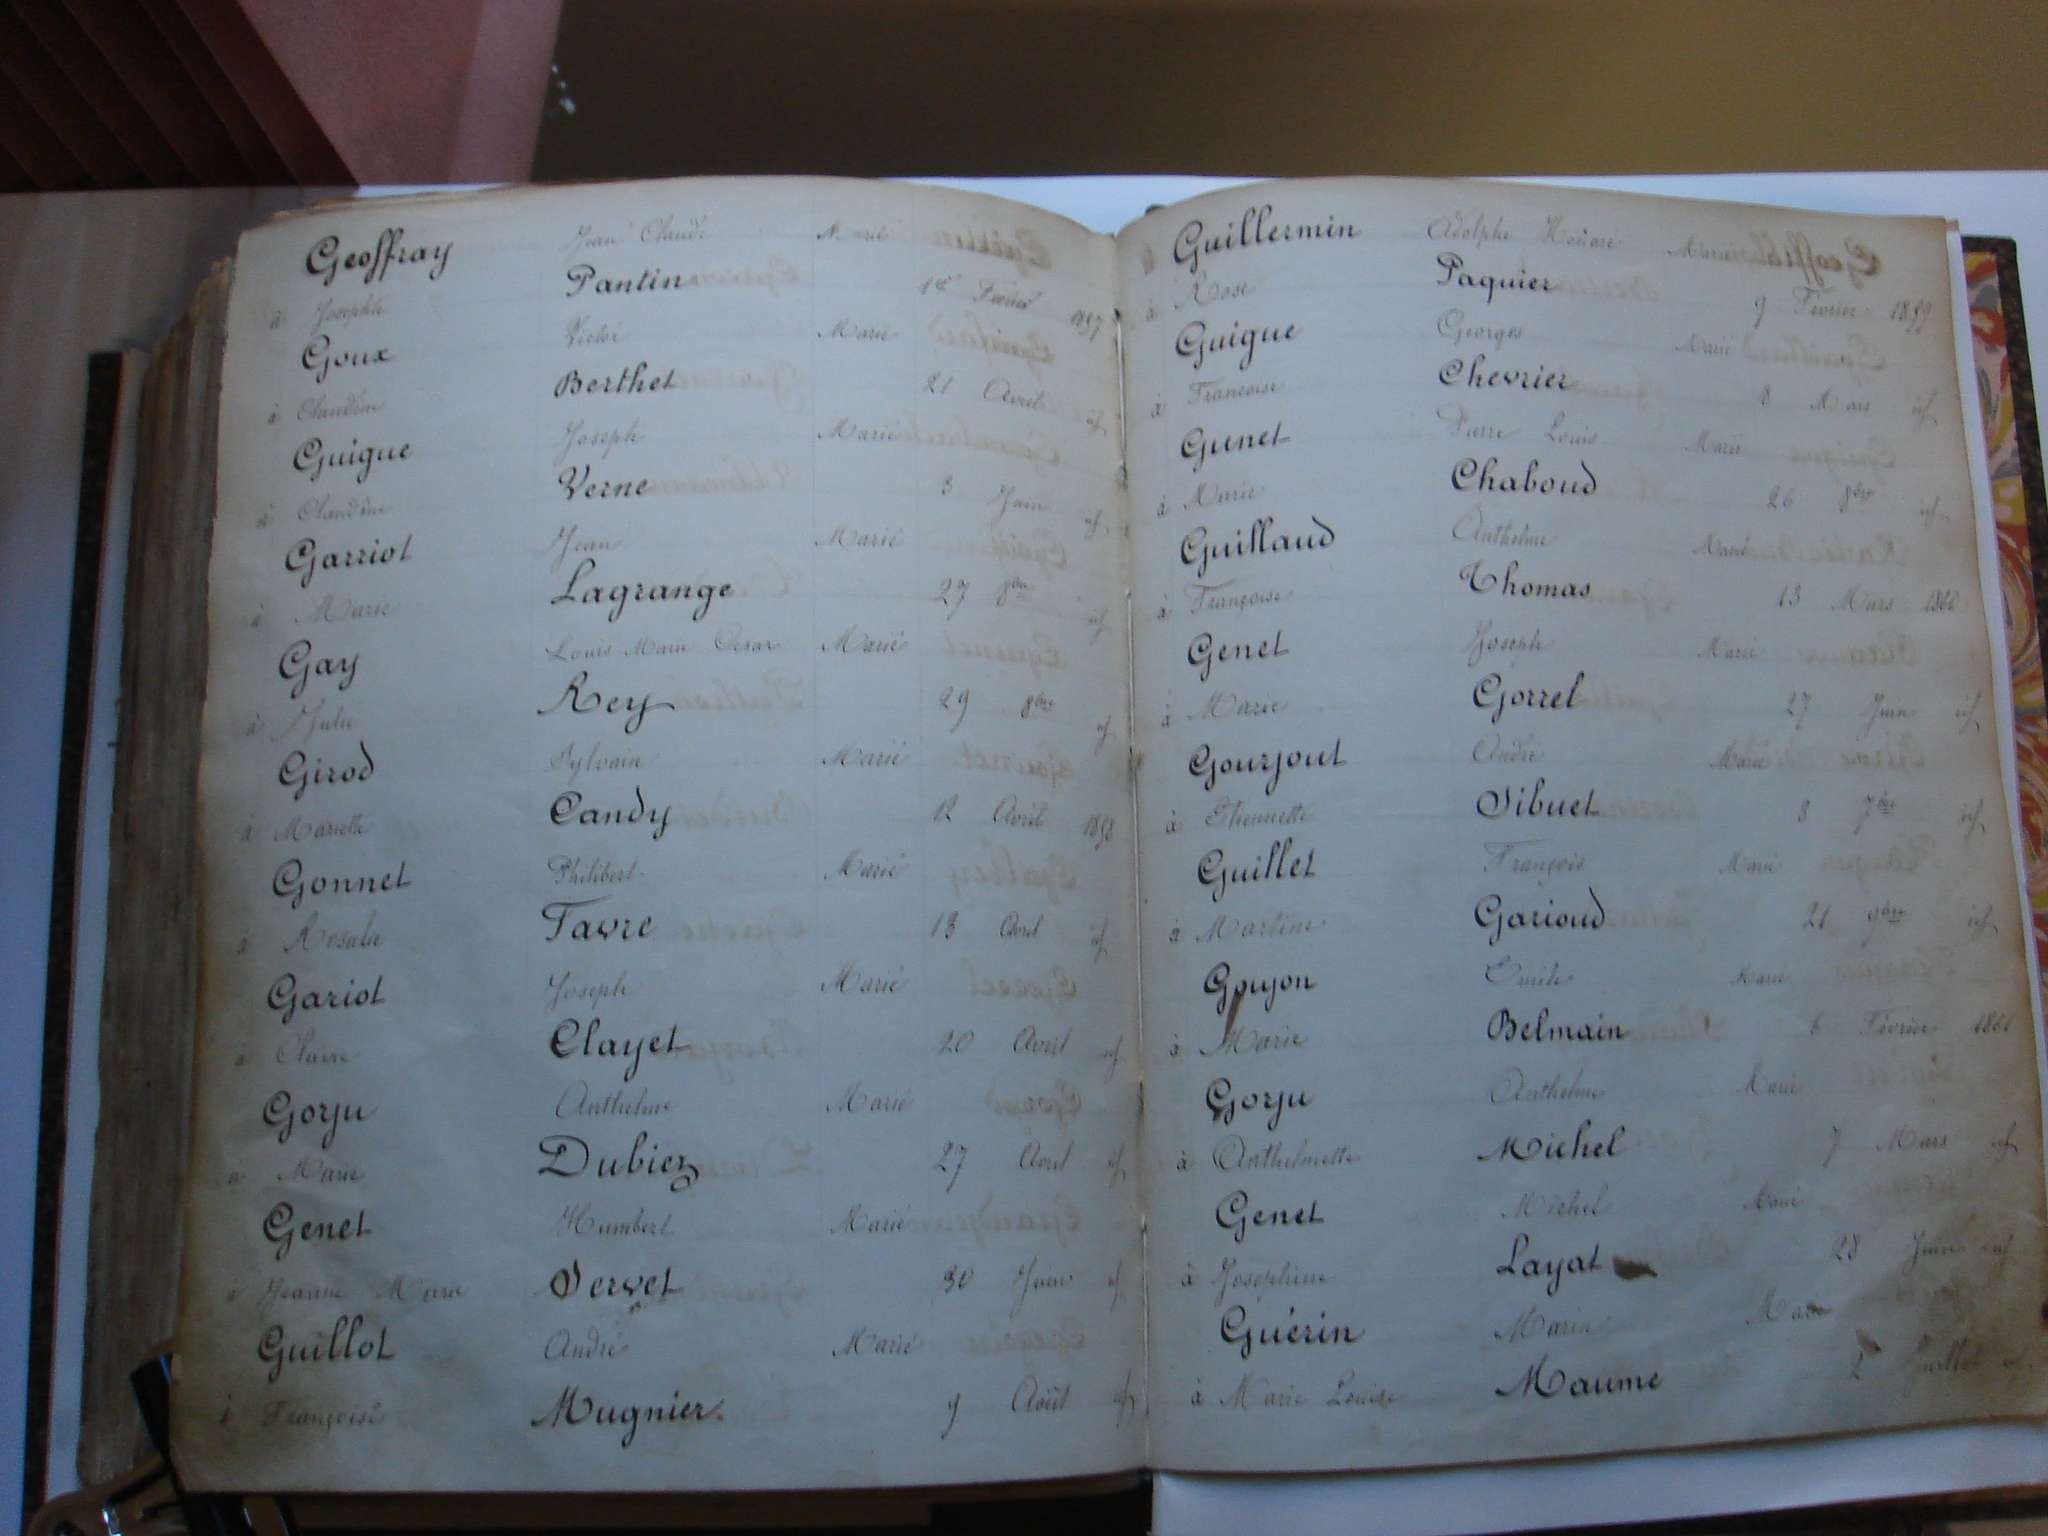 Geoffray Jean Claude Marié
à Josephte Pantin 18 Février 1857
Goux Victor Marié
à Claudine Berthet 21 Avril id
Guigue Joseph Marié
à Claudine Verne 3 Juin id
Garriot Jean Marié
à Marie Lagrange 27 8bre id
Gay Louis Marie Cesar Marié
à Julie Rey 29 8bre id
Girod Sylvain Marié
à Mariette Candy 12 Avril 1858
Gonnet Philibert Marié
à Rosalie Favre 13 Avril id
Gariot Joseph Marié
à Claire Clayet 20 Avril id
Gorju Anthelme Marié
à Marie Dubiez 27 Avril id
Genet Humbert Marié
à Jeanne Marie Servet 30 Juin id
Guillot André Marié
à Françoise Mugnier 9 Août id
Guillermin Adolphe Honoré Marié
à Rose Paquier 9 Février 1859
Guigue Georges Marié
à Françoise Chevrier 8 Mars id
Gunet Pierre Louis Marié
à Marie Chaboud 26 8bre id
Guillaud Anthelme Marié
à Françoise Thomas 13 Mars 1860
Genet Joseph Marié
à Marie Gorrel 27 Juin id
Gourjout André Marié
à Etiennette Sibuet 8 7bre id
Guillet François Marié
à Martine Garioud 21 9bre id
Goujon Emile Marié
à Marie Belmain 6 Février 1861
Gorju Anthelme Marié
à Anthelmette Michel 7 Mars id
Genet Michel Marié
à Josephine Layat 28 id
Guérin Marin Marié
à Marie Louise Maume 2 Juillet id